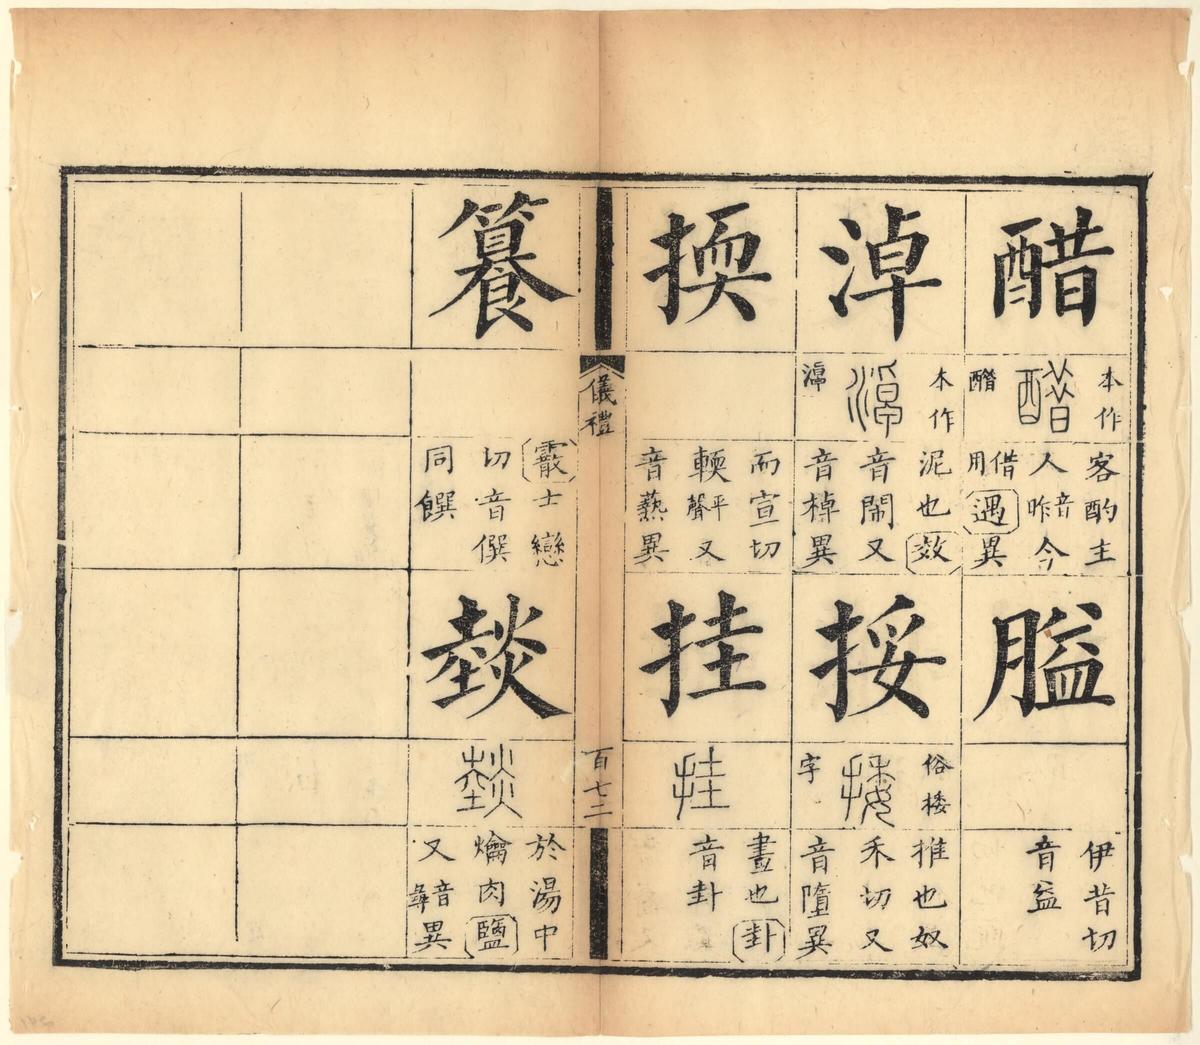 醋
本作
客酌主
人音昨今
借用遇異
膉
伊昔切
音益
淖
本作
泥也效
音閙又
音棹異
挼
俗捼
字
推也奴
禾切又
音墮異
㨎
而宣切
輭平聲又
音爇異
挂
挂
畫也卦
音卦
儀禮
百七二
籑
霰士戀
切音僎
同饌
燅
燅
於湯中
爚肉鹽
又音彝異